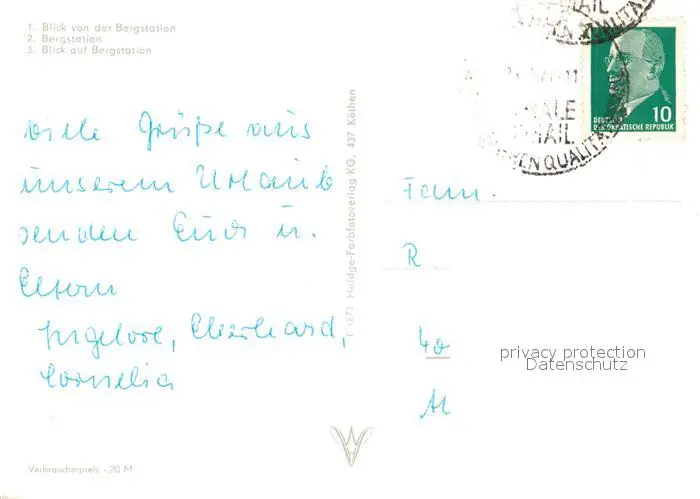 1. Blick von der Bergstation
2. Bergstation
3. Blick auf Bergstation
viele Grüße aus
unserem Urlaub
senden Euch u.
Eltern
Ingelore, Eberhard,
Cornelia
Verbraucherpreis -.20 M
Heldge-Farbfotoverlag KG, 437 Köthen
10
DEUTSCHE
DEMOKRATISCHE REPUBLIK
QUALITÄT
MAIL
Fam.
R
40
privacy protection
Datenschutz